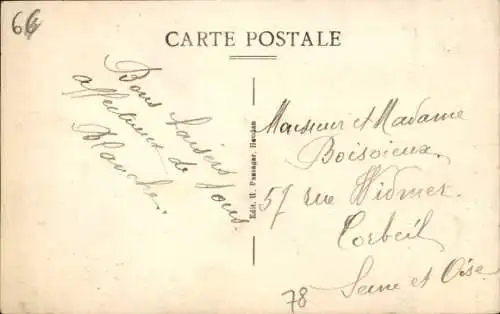 66
CARTE POSTALE
Bons baisers
affectueux de vous
Blanche.
Edit. H. Passager, Houdan
Monsieur et Madame
Boisvieux
57 rue Widmer
Corbeil
Seine et Oise
78